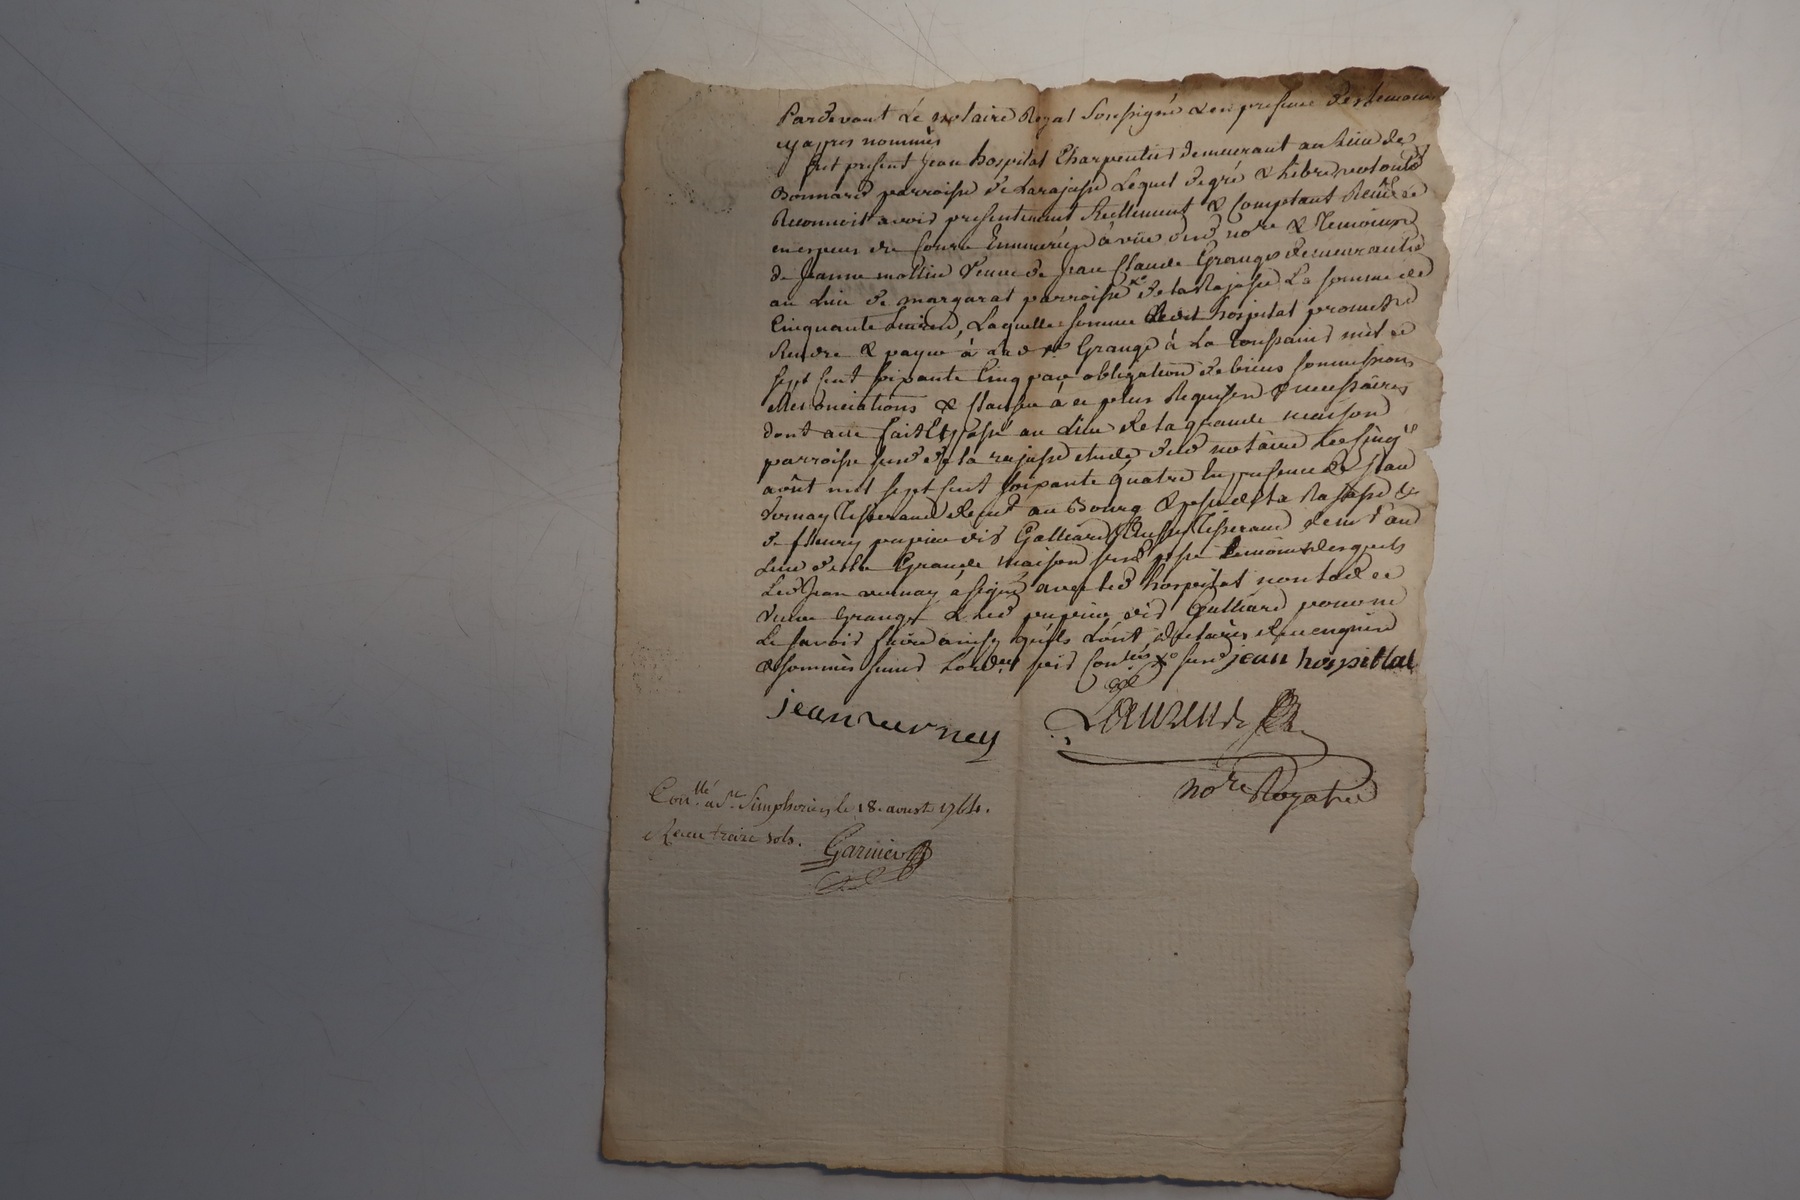 Pardevant Le notaire Royal Soussigné & en presence des temoins
cy apres nommés
fut present Jean hospital Charpentier demeurant au Lieu de
Bonnard parroisse de Larajasse Lequel de gré & libre volonté
Reconnoit avoir presentement Reellement & Comptant Receu
en especes de Cours à vüe dud no.re & Temoins
de Jeanne mollin Veuve de Jean Claude Grange demeurante
au Lieu de margarat parroisse de la Rajasse La somme de
Cinquante Livres, Laquelle somme Ledit hospital promet
Rendre & payer à lad Grange à La Toussaint mil
sept cent soixante Cinq par obligation de biens soumissions
Renonciations & clauses à ce plus Requises & necessaires
dont acte fait & passé au Lieu de la grande maison
parroisse susd de la rajasse etude dud notaire Le cinq
août mil sept cent soixante quatre En presence de Jean
Vernay Tisserand demt au Bourg & psse de La Rajasse &
de fleury papier dit Galliard aussy Tisserand demt aud
Lieu de la Grande maison susd psse temoins desquels
Led Jean vernay a signé avec led hospital non lad
veuve Grange & Led papier dit Galliard pour ne
Le savoir faire ainsy qu'ils L'ont declaré de ce enquis
& sommés suivt Lord.ce jean hospittal
jean verney
Laurendt
no.re Royal
Con.llé à St. Simphorien le 18. aoust 1764.
Recu treize sols.
Garnier